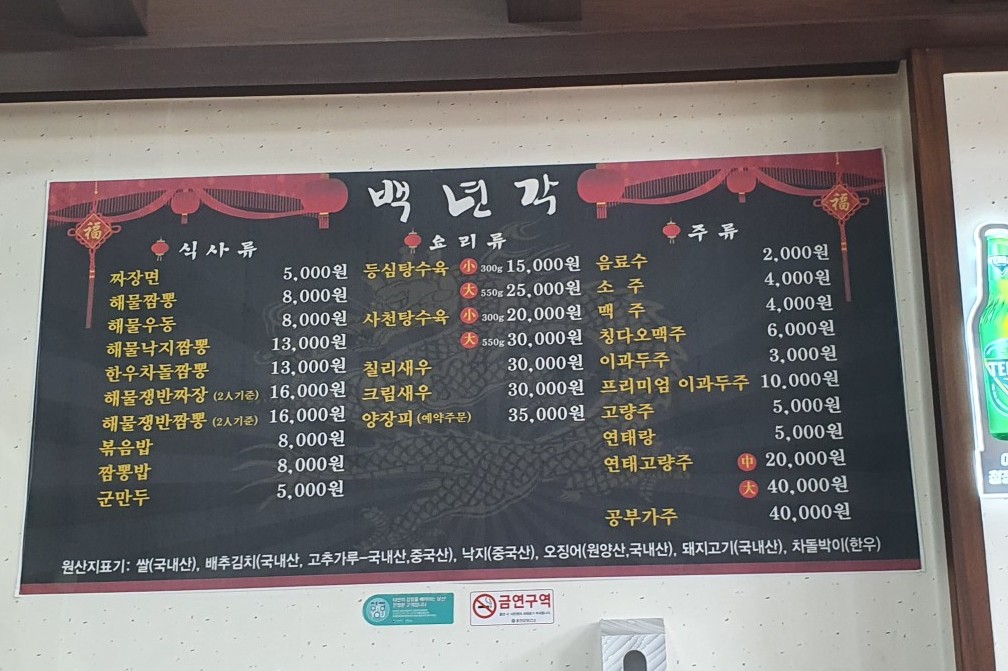 백년각
福
福
식사류
짜장면 5,000원
해물짬뽕 8,000원
해물우동 8,000원
해물낙지짬뽕 13,000원
한우차돌짬뽕 13,000원
해물쟁반짜장 (2人기준) 16,000원
해물쟁반짬뽕 (2人기준) 16,000원
볶음밥 8,000원
짬뽕밥 8,000원
군만두 5,000원
요리류
등심탕수육 小 300g 15,000원
大 550g 25,000원
사천탕수육 小 300g 20,000원
大 550g 30,000원
칠리새우 30,000원
크림새우 30,000원
양장피 (예약주문) 35,000원
주류
음료수 2,000원
소 주 4,000원
맥 주 4,000원
칭다오맥주 6,000원
이과두주 3,000원
프리미엄 이과두주 10,000원
고량주 5,000원
연태랑 5,000원
연태고량주 中 20,000원
大 40,000원
공부가주 40,000원
원산지표기: 쌀(국내산), 배추김치(국내산, 고추가루-국내산,중국산), 낙지(중국산), 오징어(원양산,국내산), 돼지고기(국내산), 차돌박이(한우)
금연구역